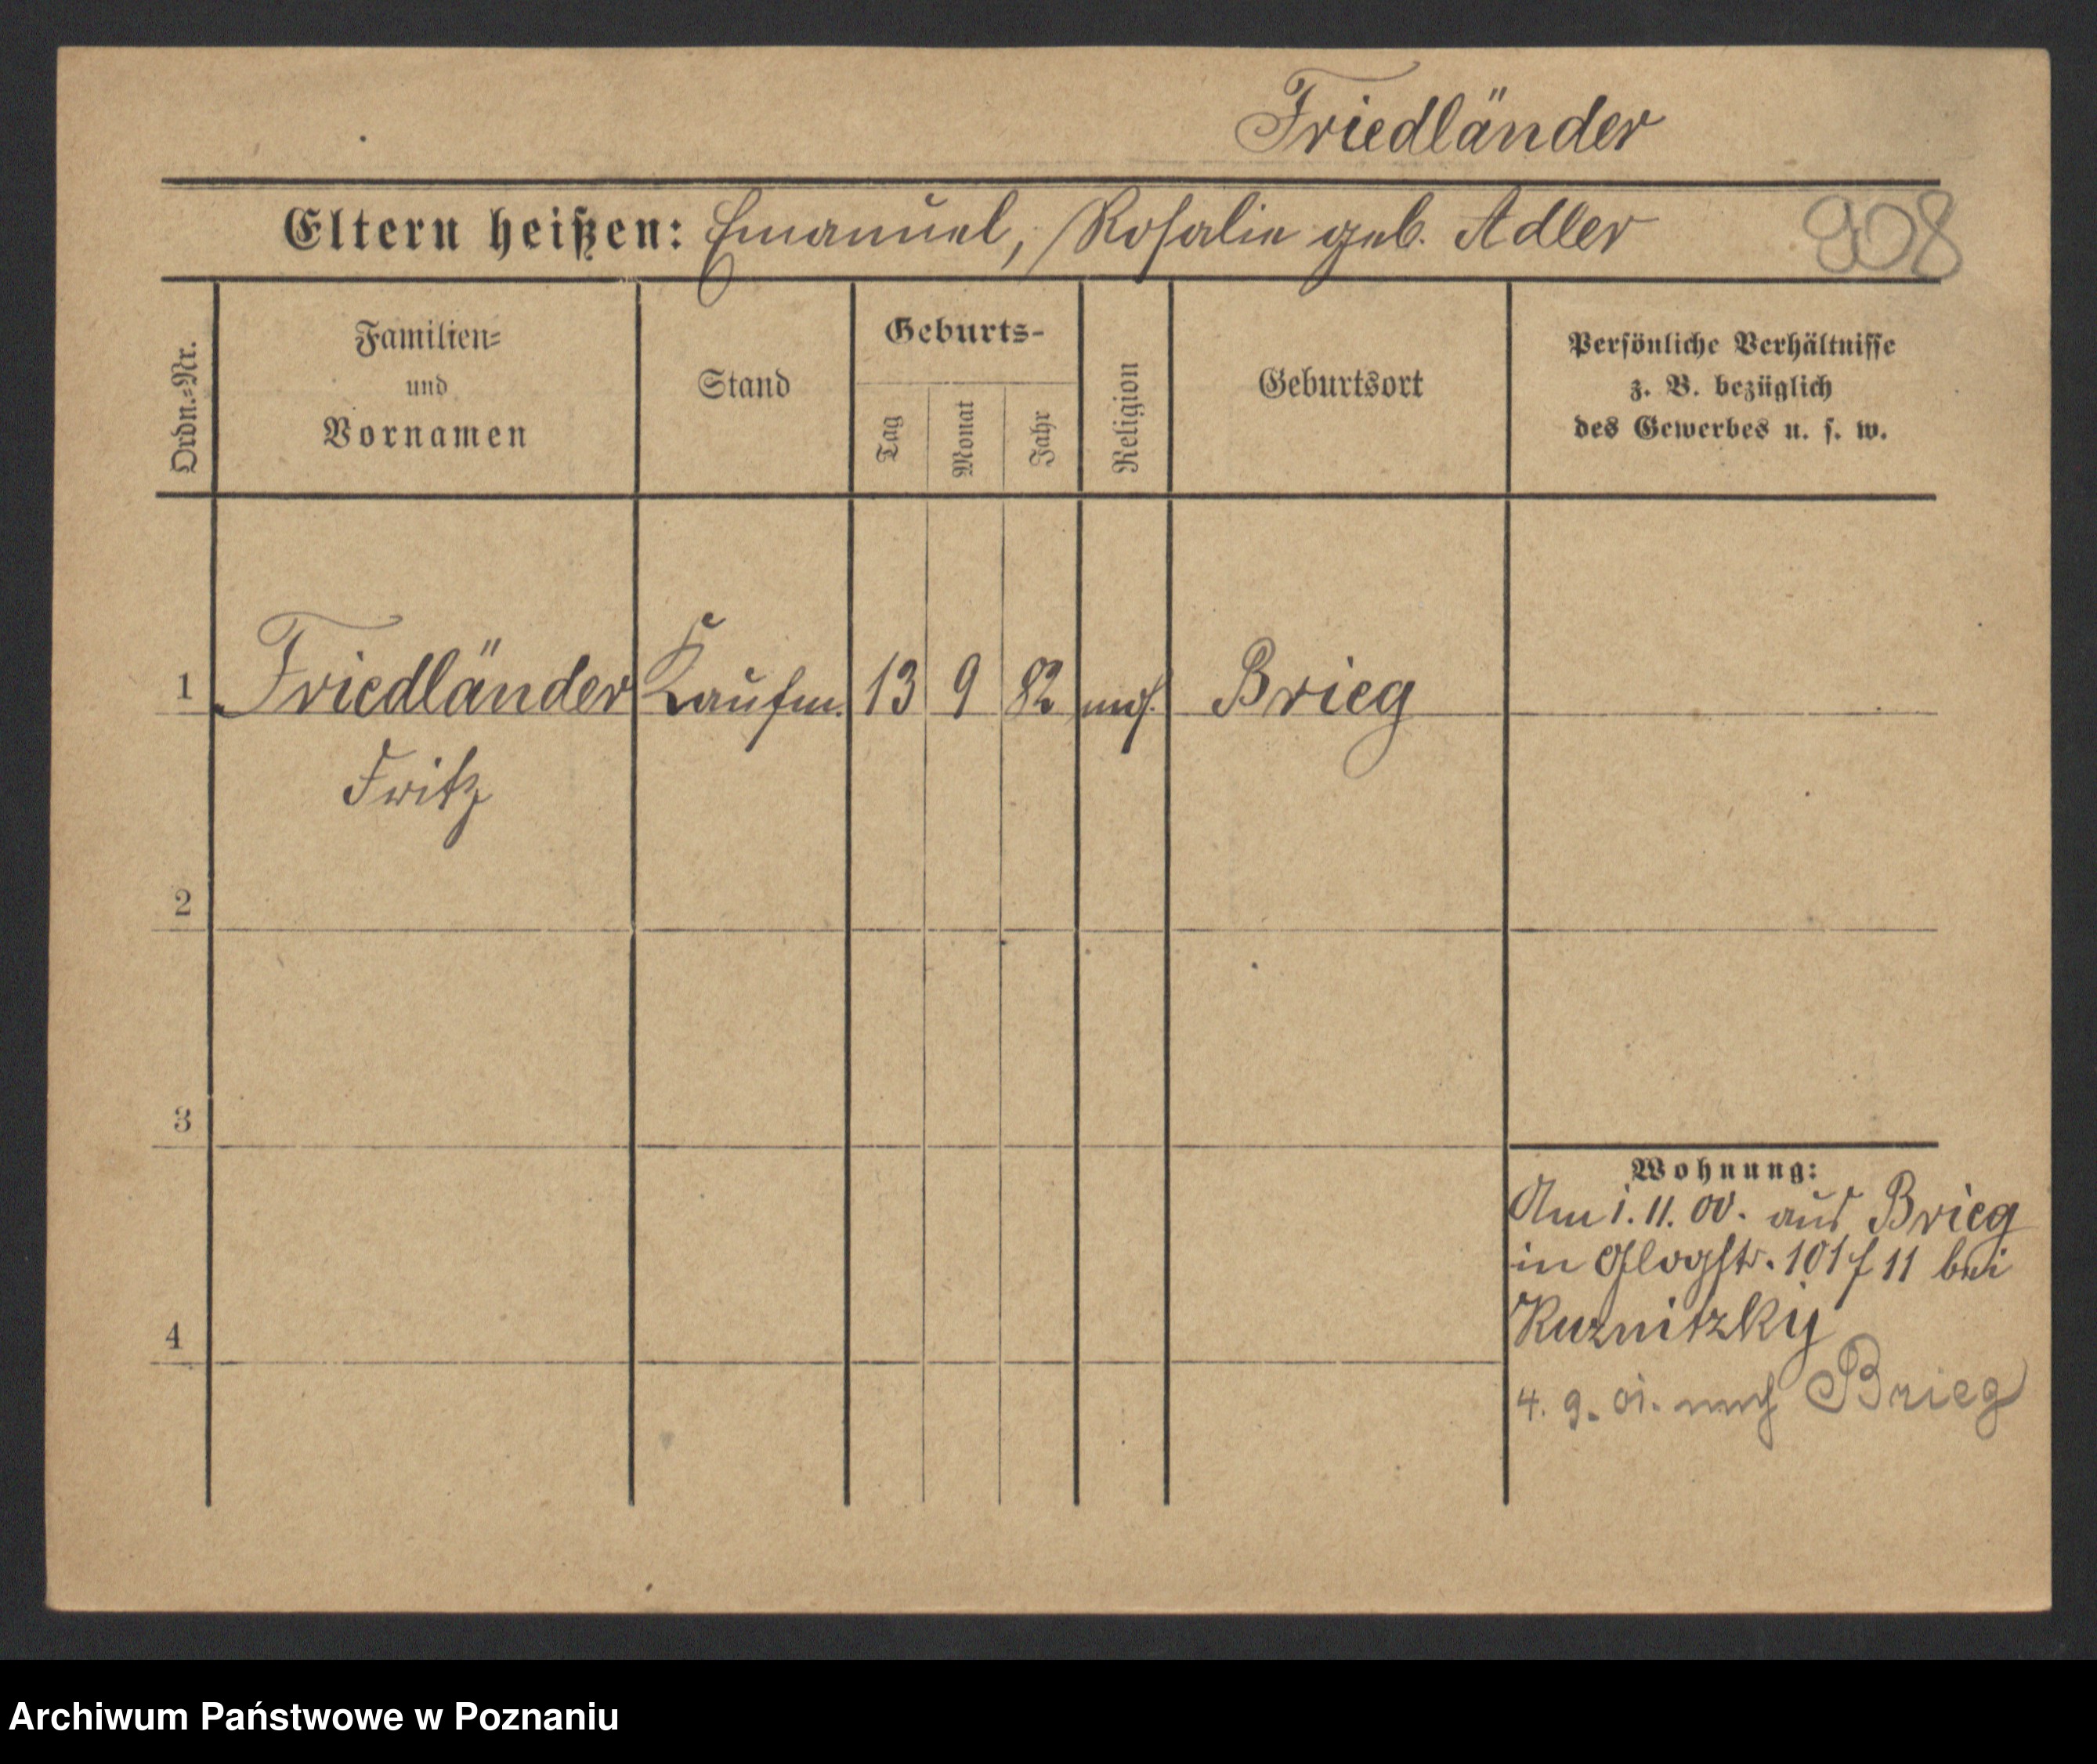 Friedländer
Eltern heißen: Emanuel, Rosalie geb. Adler
908
Ordn.=Nr.
Familien=
und
Vornamen
Stand
Geburts-
Tag
Monat
Jahr
Religion
Geburtsort
Persönliche Verhältnisse
z. B. bezüglich
des Gewerbes u. s. w.
1 Friedländer Kaufm. 13 9 82 mos. Brieg
Fritz
2
3
4
Wohnung:
Am 1. 11. 00. aus Brieg
in Glogstr. 101 11 bei
Kuznitzky
4. 9. 01. nach Brieg
Archiwum Państwowe w Poznaniu